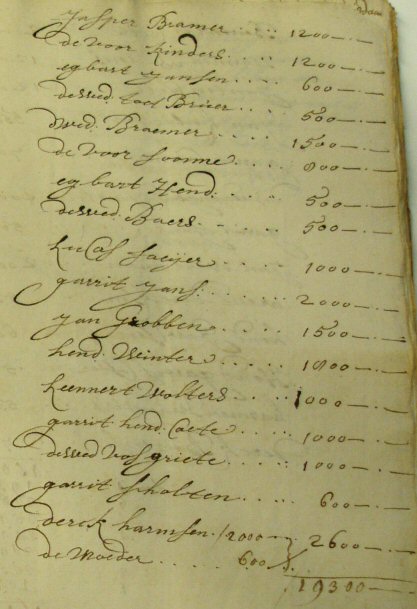 Jasper Bramer .... 1200—.—
de voor kinders .... 1200—.—
egbart Jansen .... 600—.—
de wed: toel Briier .... 500—.—
d wed: Braemer .... 1500—.—
de voor soonne .... 800—.—
egbart Hend: .... 500—.—
de wed: Baers .... 500—.—
Lucas .... 1000—.—
garrit Jans: .... 2000—.—
Jan Grobben .... 1500—.—
hend: Winter .... 1800—.—
Leennert Wolters .... 1000—.—
garrit hend: Coete .... 1000—.—
de wed vos griete .... 1000—.—
garrit scholten .... 600—.—
derck harmsen . 2000— } 2600—.—
de Moeder .... 600
19300—.—